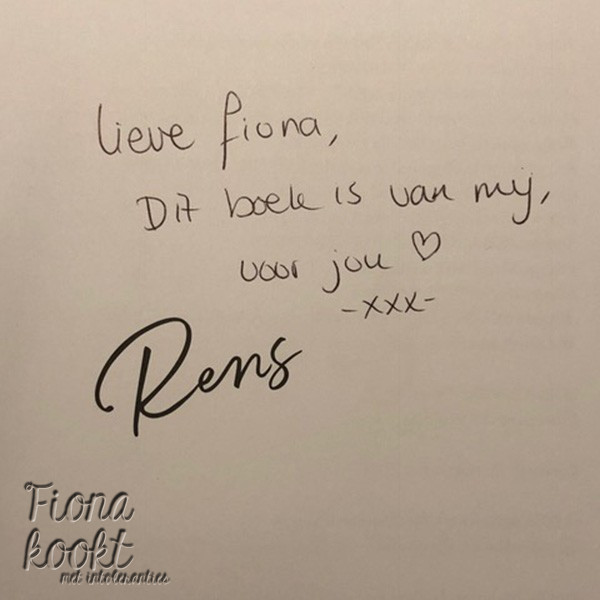 Lieve Fiona,
Dit boek is van mij,
voor jou ♡
-xxx-
Rens
Fiona
kookt
met intoleranties